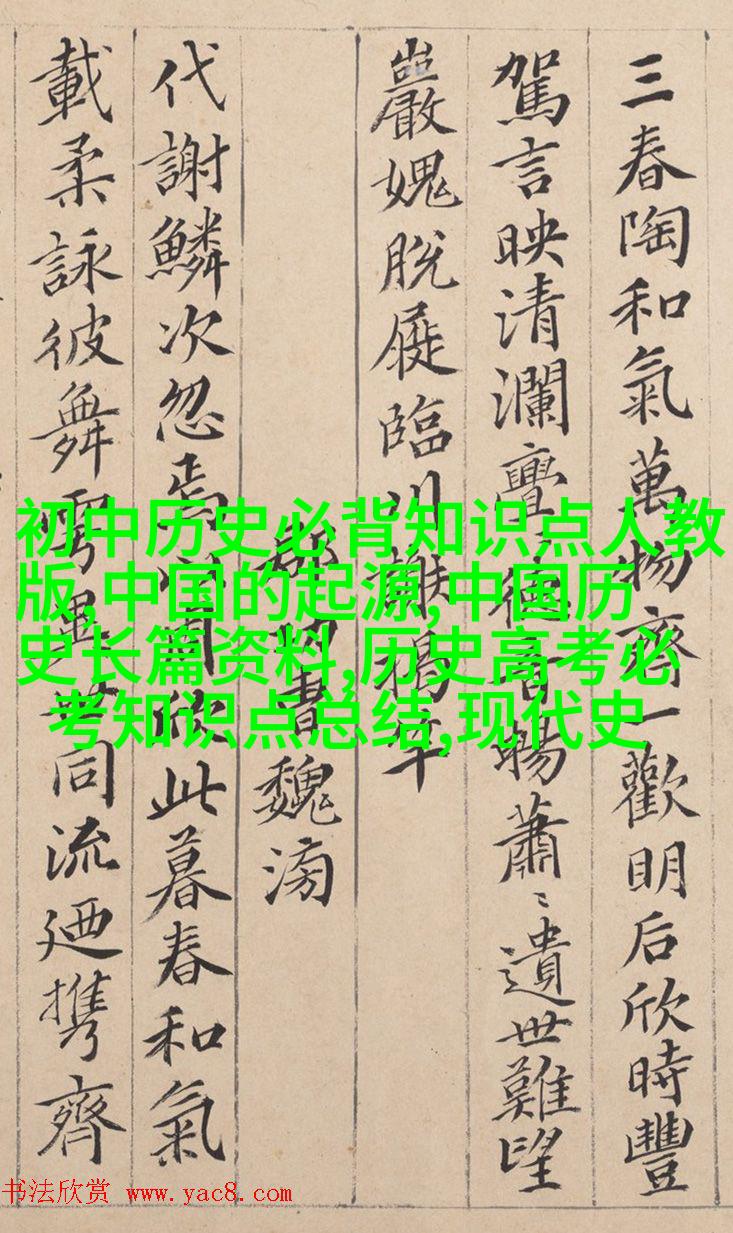 三春陶和氣萬物齊一歡明后欣時豐
駕言映清瀾亹〻德音暢蕭〻遺世難望
巖愧脫屣臨川謝揭竿
郡功曹魏滂
代謝鱗次忽焉以周欣此暮春和氣
載柔詠彼舞雩異世同流廼携齊
初中历史必背知识点人教
版,中国的起源,中国历
史长篇资料,历史高考必
考知识点总结,现代史
书法欣赏 www.yac8.com